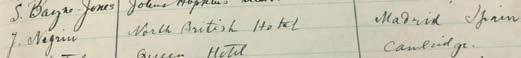 S. Bayne-Jones Johns Hopkins
J. Negrin North British Hotel Madrid Spain
Queen Hotel Cambridge.